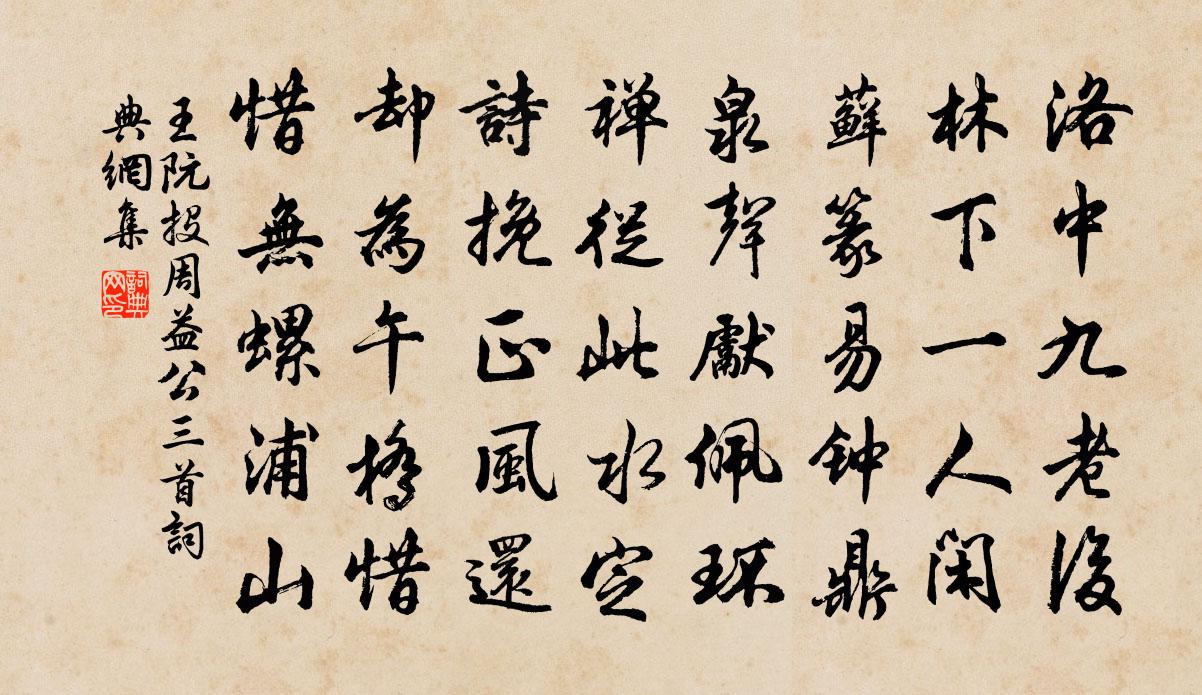 洛中九老後
林下一人閑
蘚篆易钟鼎
泉聲獻佩环
禅從此水定
詩挽正風還
却為午橋惜
惜無螺浦山
王阮投周益公三首詞
典網集
詞典
网印